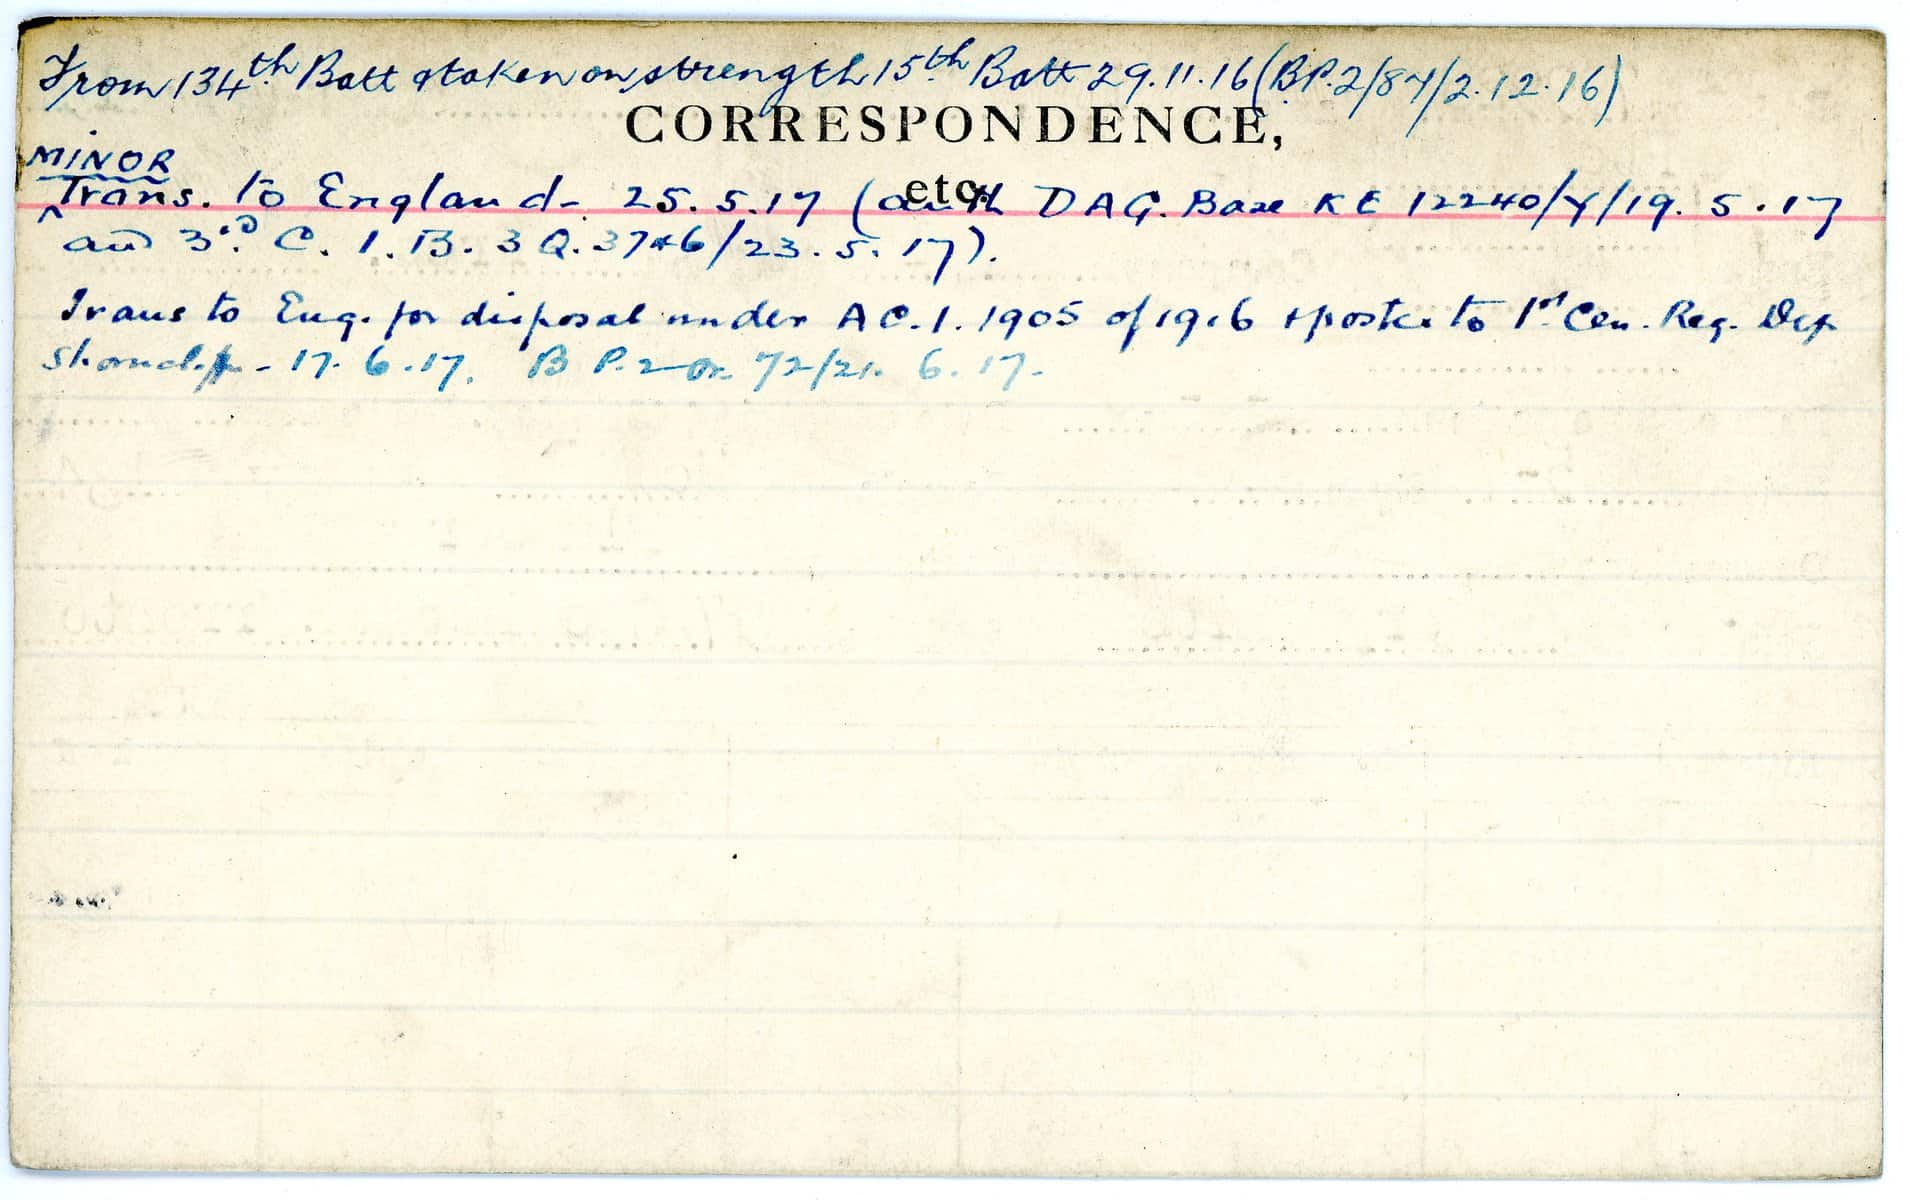 From 134th Batt & taken on strength 15th Batt 29.11.16 (BP.2/87/2.12.16)
CORRESPONDENCE,
etc.
MINOR
Trans. to England - 25.5.17 (auth DAG. Base KE 12240/Y/19.5.17
and 3rd C.I.B. 3Q.3746/23.5.17).
Trans to Eng. for disposal under A C.I. 1905 of 1916 & posted to 1st Cen. Reg. Dep
- 17.6.17. B P.2 Or. 72/21.6.17.